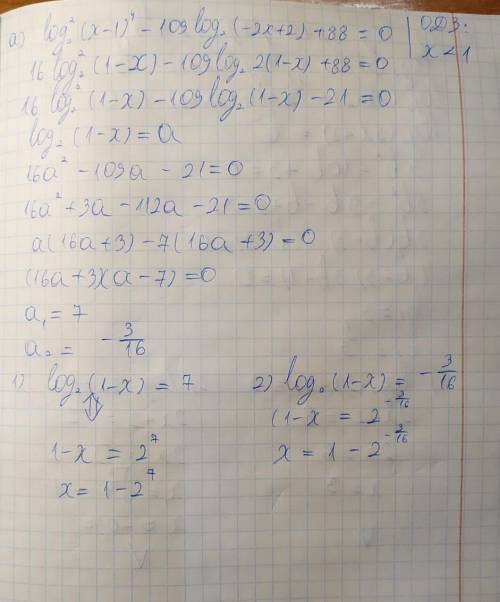 а) log₂² (x-1)⁴ - 109 log₂ (-2x+2) + 88 = 0 | ОДЗ:
16 log₂² (1-x) - 109 log₂ 2(1-x) + 88 = 0 | x < 1
16 log₂² (1-x) - 109 log₂ (1-x) - 21 = 0
log₂ (1-x) = a
16a² - 109a - 21 = 0
16a² + 3a - 112a - 21 = 0
a(16a+3) - 7(16a+3) = 0
(16a+3)(a-7) = 0
a₁ = 7
a₂ = -3/16
1) log₂ (1-x) = 7
⇕
1-x = 2⁷
x = 1 - 2⁷
2) log₂ (1-x) = -3/16
(1-x = 2^(-3/16)
x = 1 - 2^(-3/16)